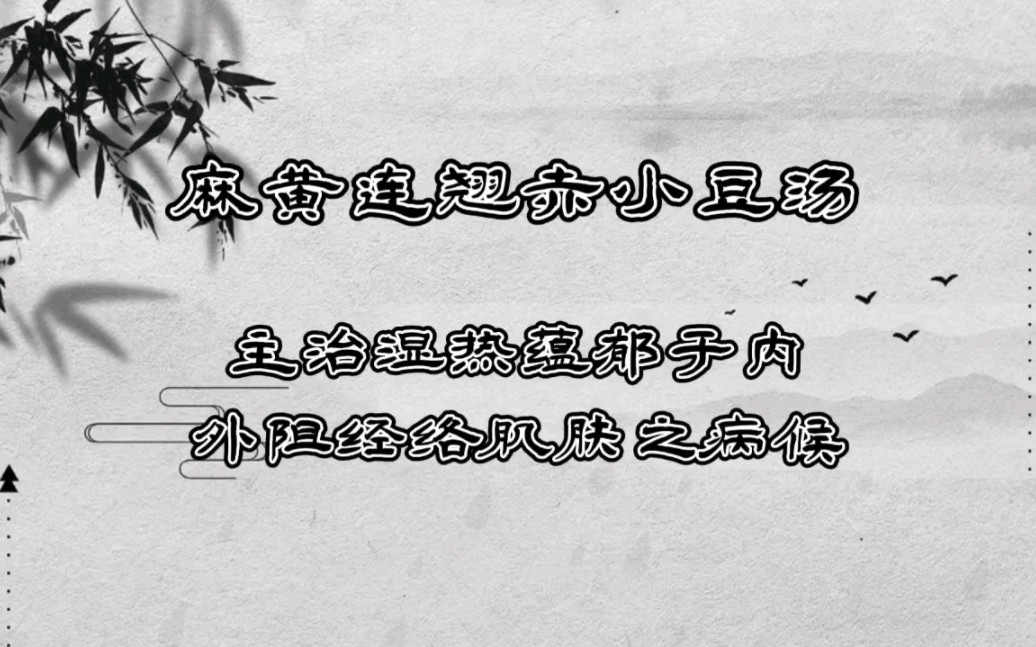 麻黄连翘赤小豆汤
主治湿热蕴郁于内
外阻经络肌肤之病候